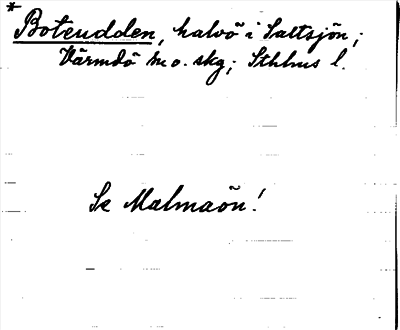 * Boteudden, halvö i Saltsjön;
Värmdö sn o. skg; Sthlms l.
Se Malmaön!